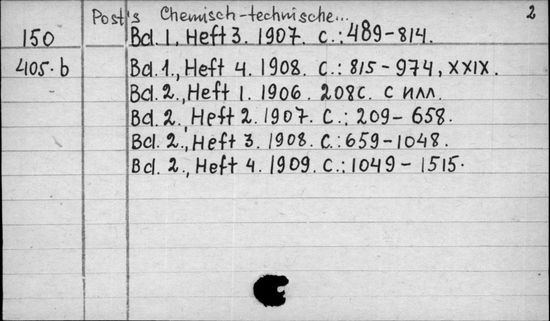 Post's Chemisch-technische... 2
150 Bd. 1, Heft 3. 1907. С.: 489-814.
405.b Bd. 1., Heft 4. 1908. С.: 815-974, XXIX.
Bd. 2., Heft 1. 1906. 208С. с илл.
Bd. 2., Heft 2. 1907. С.: 209-658.
Bd. 2., Heft 3. 1908. С.: 659-1048.
Bd. 2., Heft 4. 1909. С.: 1049-1515.